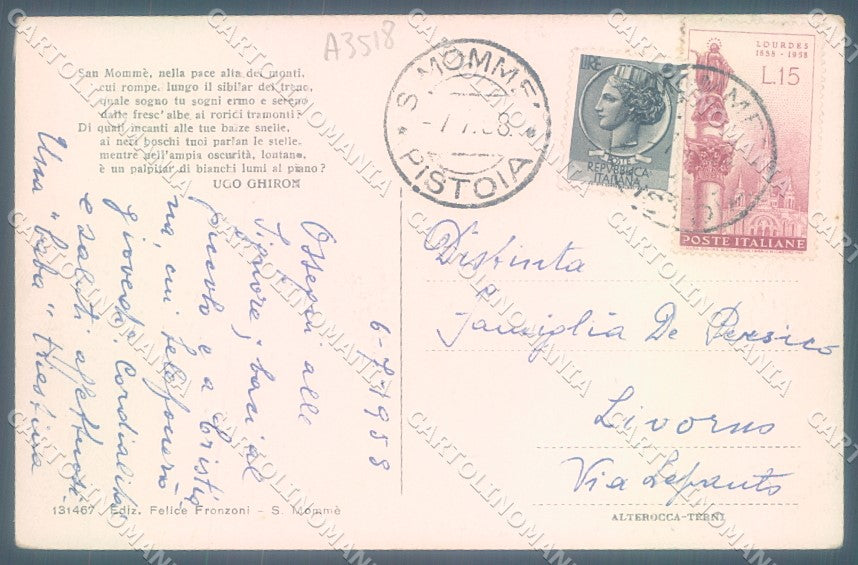 A3518
San Mommè, nella pace alta dei monti,
cui rompe, lungo il sibilar del treno,
quale sogno tu sogni ermo e sereno
dalle fresc' albe ai rorici tramonti?
Di quali incanti alle tue balze snelle,
ai neri boschi tuoi parlan le stelle,
mentre nell'ampia oscurità, lontano,
è un palpitar di bianchi lumi al piano?
UGO GHIRON
6-7-1958
Ossequi alle
Signore; baci al
piccolo e a Cristia
na, cui telefonerò
giovedì. Cordialità
e saluti affettuosi.
Una "beba" triestina
131467 Ediz. Felice Fronzoni - S. Mommè
S. MOMME'
-7.7.58
* PISTOIA *
LIRE
POSTE
REPVBBLICA
ITALIANA
LOURDES
1858 - 1958
L.15
POSTE ITALIANE
Distinta
Famiglia De Persico
Livorno
Via Lepanto
ALTEROCCA-TERNI
CARTOLINOMANIA